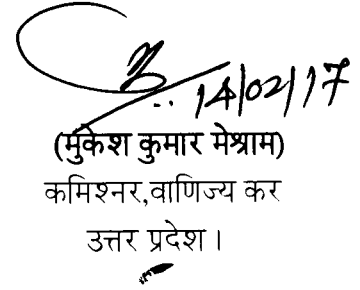 14/02/17
(मुकेश कुमार मेश्राम)
कमिश्नर,वाणिज्य कर
उत्तर प्रदेश।